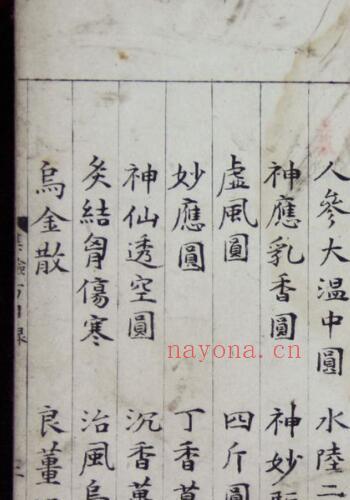 人參大温中圓 水陸二
神應乳香圓 神妙
虛風圓 四斤圓
妙應圓 丁香
神仙透空圓 沉香
灸結胷傷寒 治風烏
烏金散 良薑
集驗方目錄
nayona.cn